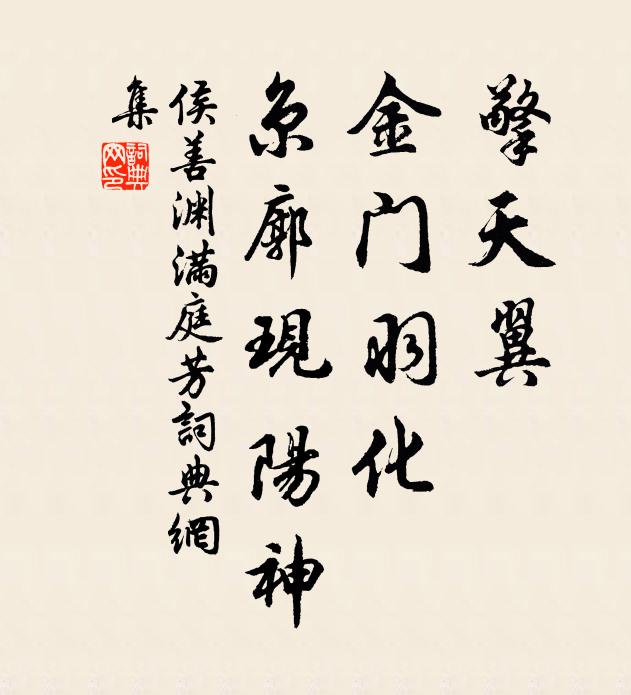 擎天翼
金門羽化
京廓現陽神
侯善淵滿庭芳詞典網
集
詞典
网印